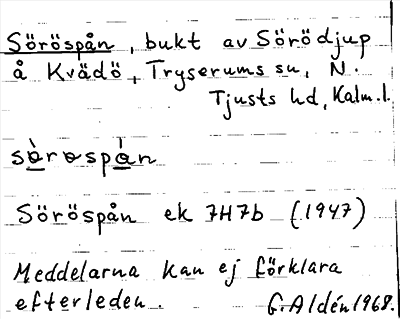 Söröspån, bukt av Sörödjup
å Kvädö, Tryserums sn, N.
Tjusts hd, Kalm.l.
sö̀rəspàn
Söröspån ek 7H7b (1947)
Meddelarna kan ej förklara
efterleden. G. Aldén 1968.